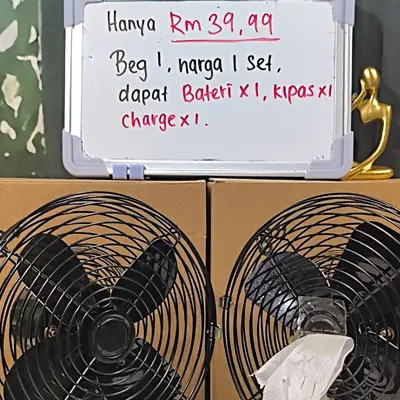 Hanya Rm 39,99
Beg 1, harga 1 Set,
dapat Bateri x 1, Kipas x 1
charge x 1.